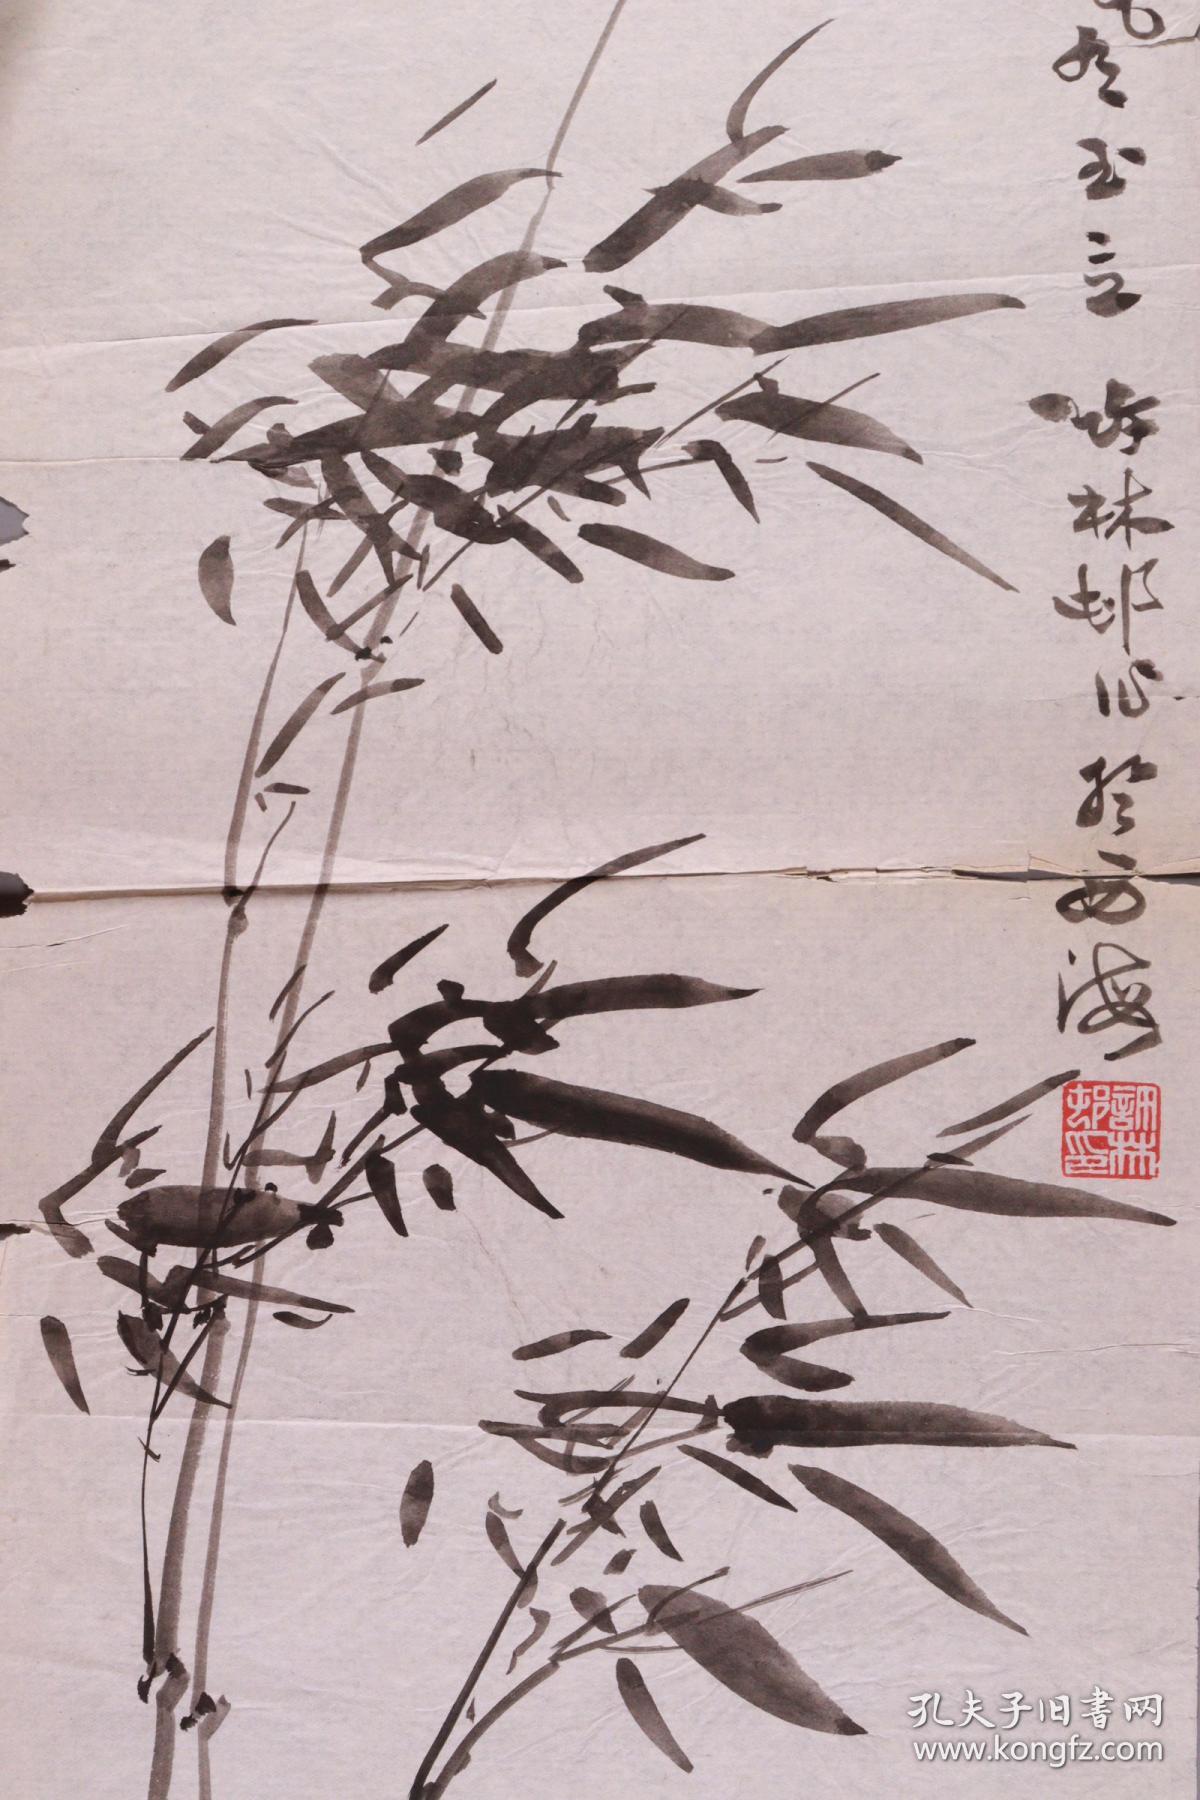 玉立 許林邨作於西海
許林邨印
孔夫子旧书网
www.kongfz.com